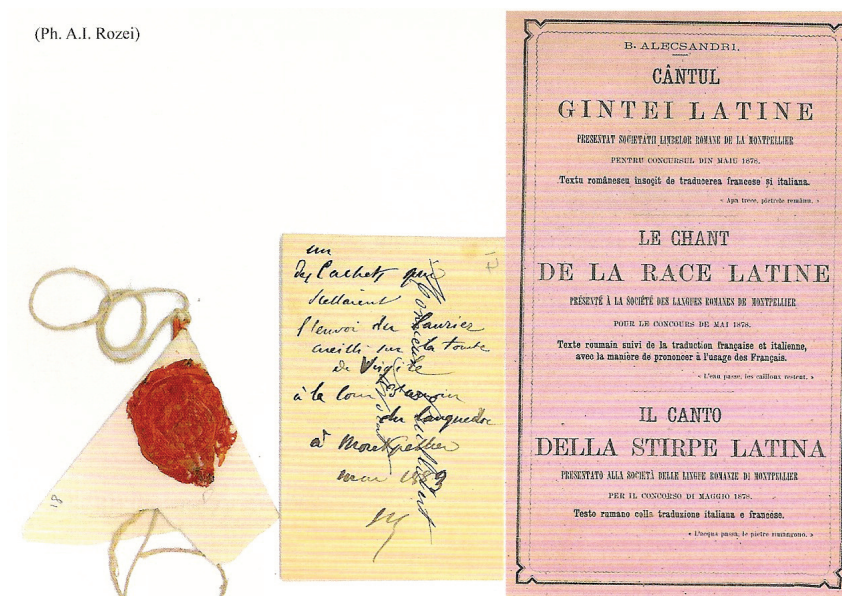 (Ph. A.I. Rozei)
un
des Cachets qui
Scellaient
l'envoi du laurier
cueilli sur la tombe
de Virgile
à la
du Languedoc
à Montpellier
mai
17
18
B. ALECSANDRI.
CÂNTUL
GINTEI LATINE
PRESENTAT SOCIETATII LIMBELOR ROMANE DE LA MONTPELLIER
PENTRU CONCURSUL DIN MAIU 1878.
Textu românescu însoçit de traducerea francese și italiana.
« Apa trece, pietrele remânu. »
LE CHANT
DE LA RACE LATINE
PRÉSENTÉ À LA SOCIÉTÉ DES LANGUES ROMANES DE MONTPELLIER
POUR LE CONCOURS DE MAI 1878.
Texte roumain suivi de la traduction française et italienne,
avec la manière de prononcer à l'usage des Français.
« L'eau passe, les cailloux restent. »
IL CANTO
DELLA STIRPE LATINA
PRESENTATO ALLA SOCIETÀ DELLE LINGUE ROMANZE DI MONTPELLIER
PER IL CONCORSO DI MAGGIO 1878.
Testo rumano colla traduzione italiana e francése.
« L'acqua passa, le pietre rimangono. »